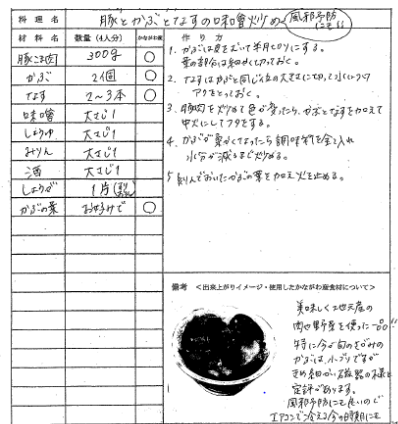 料理名 豚とかぶとなすの味噌炒め 風邪予防にも!!
材料名 数量(4人分) かながわ産 作り方
豚こま肉 300g ○
かぶ 2個 ○
なす 2〜3本 ○
味噌 大さじ1
しょうゆ 大さじ1
みりん 大さじ1
酒 大さじ1
しょうが 1片
かぶの葉 お好みで ○
1. かぶは皮をむいて半月切りにする。
葉の部分は細かく切っておく。
2. なすはかぶと同じ位の大きさに切って水につけ
アクをとっておく。
3. 豚肉を炒めて色が変ったら、かぶとなすを加えて
中火にしてフタをする。
4. かぶが柔かくなったら調味料を全て入れ
水分が減るまで炒める。
5 刻んでおいたかぶの葉を加え火を止める。
備考 <出来上がりイメージ・使用したかながわ産食材について>
美味しく地元産の
肉と野菜を使った一品!!
特に今が旬の
かぶは、小ブリですが
きめ細かい磁器の様と
定評があります。
風邪予防にも良いので
エアコンで冷える今の時期にも